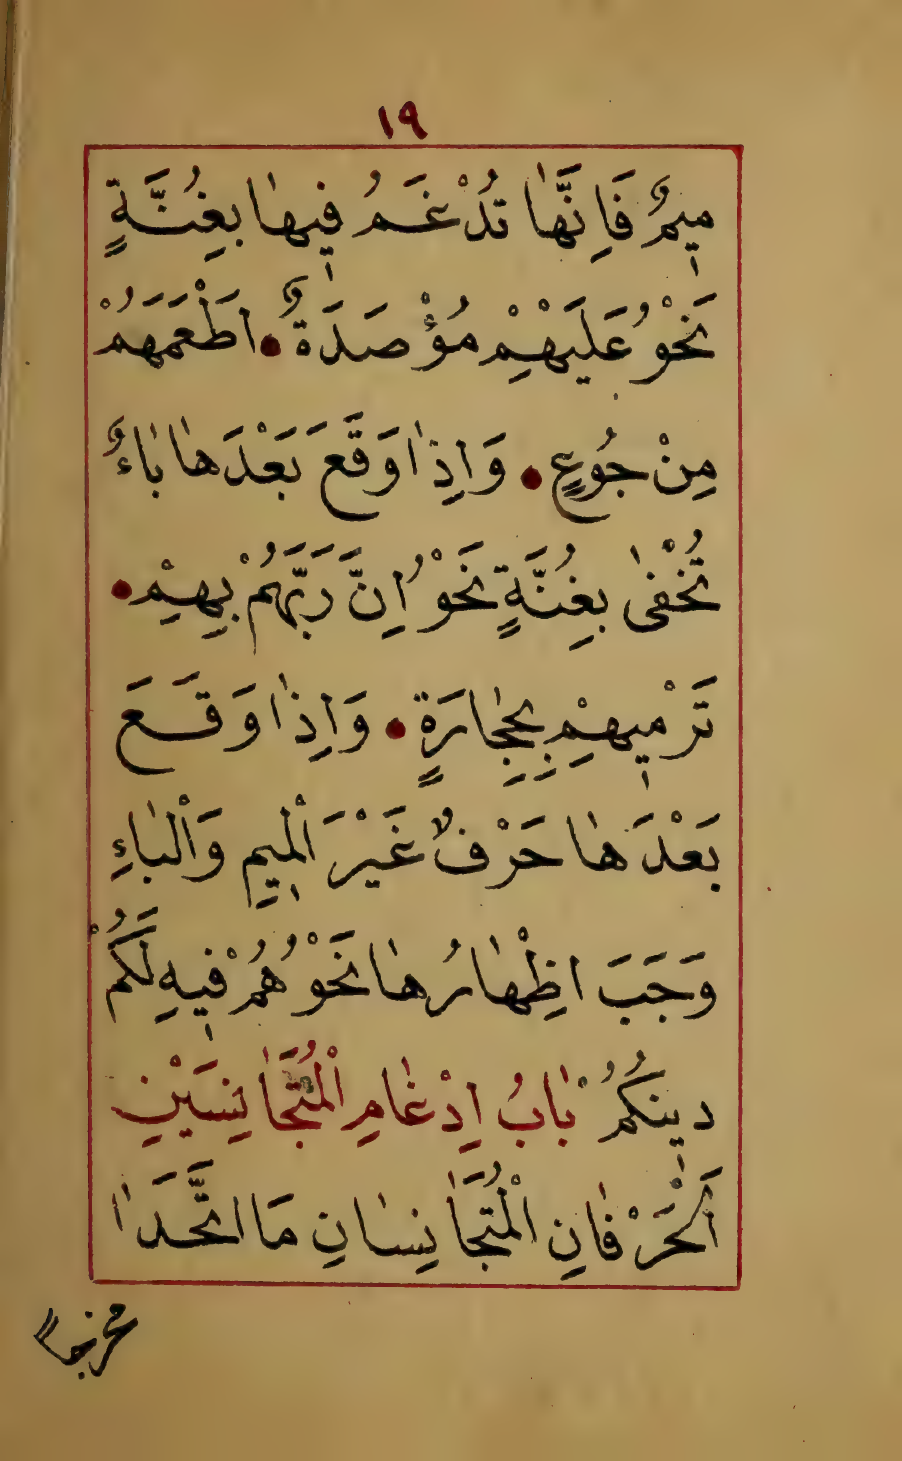 ١٩
مِيمٌ فَاِنَّهَا تُدْغَمُ فِيهَا بِغُنَّةٍ
نَحْوُ عَلَيْهِمْ مُؤْصَدَةٌ • اَطْعَمَهُمْ
مِنْ جُوعٍ • وَاِذَا وَقَعَ بَعْدَهَا بَاءٌ
تُخْفٰى بِغُنَّةٍ نَحْوُ اِنَّ رَبَّهُمْ بِهِمْ •
تَرْمِيهِمْ بِحِجَارَةٍ • وَاِذَا وَقَعَ
بَعْدَهَا حَرْفٌ غَيْرَ الْمِيمِ وَالْبَاءِ
وَجَبَ اِظْهَارُهَا نَحْوُ هُمْ فِيهِ لَكُمْ
دِينُكُمْ بَابُ اِدْغَامِ الْمُتَجَانِسَيْنِ
اَلْحَرْفَانِ الْمُتَجَانِسَانِ مَا اتَّحَدَا